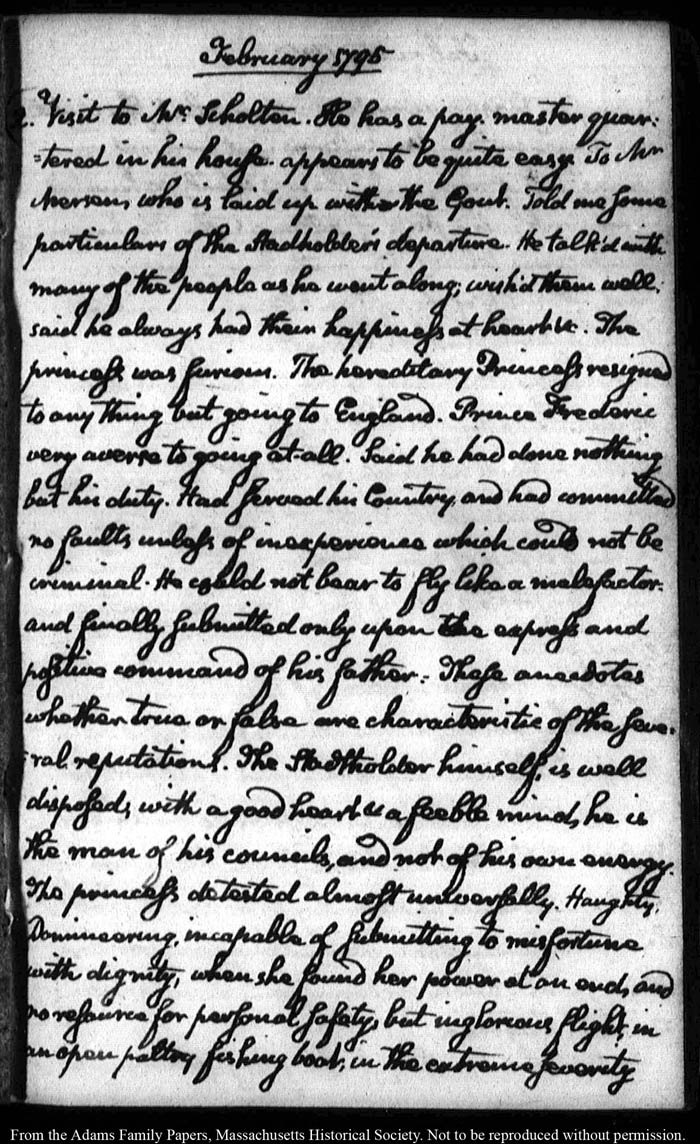 February 1795
2. Visit to Mr. Scholten. He has a pay-master quar:
=tered in his house. appears to be quite easy. To Mr
Mersen, who is laid up with the Gout. Told me some
particulars of the Stadholder's departure. He talk'd with
many of the people as he went along; wish'd them well,
said he always had their happiness at heart &c. The
princess was furious. The hereditary Princess resigned
to any thing but going to England. Prince Frederic
very averse to going at-all. Said he had done nothing
but his duty. Had served his Country, and had committed
no faults unless of inexperience which could not be
criminal. He could not bear to fly like a malefactor.
and finally submitted only upon the express and
positive command of his father. These anecdotes
whether true or false are characteristic of the seve-
=ral reputations. The Stadtholder himself, is well
disposed, with a good heart & a feeble mind, he is
the man of his councils, and not of his own energy.
The princess detested almost universally. Haughty,
Domineering, incapable of submitting to misfortune
with dignity, when she found her power at an end, and
no resource for personal safety, but inglorious flight, in
an open paltry fishing boat, in the extreme severity
From the Adams Family Papers, Massachusetts Historical Society. Not to be reproduced without permission